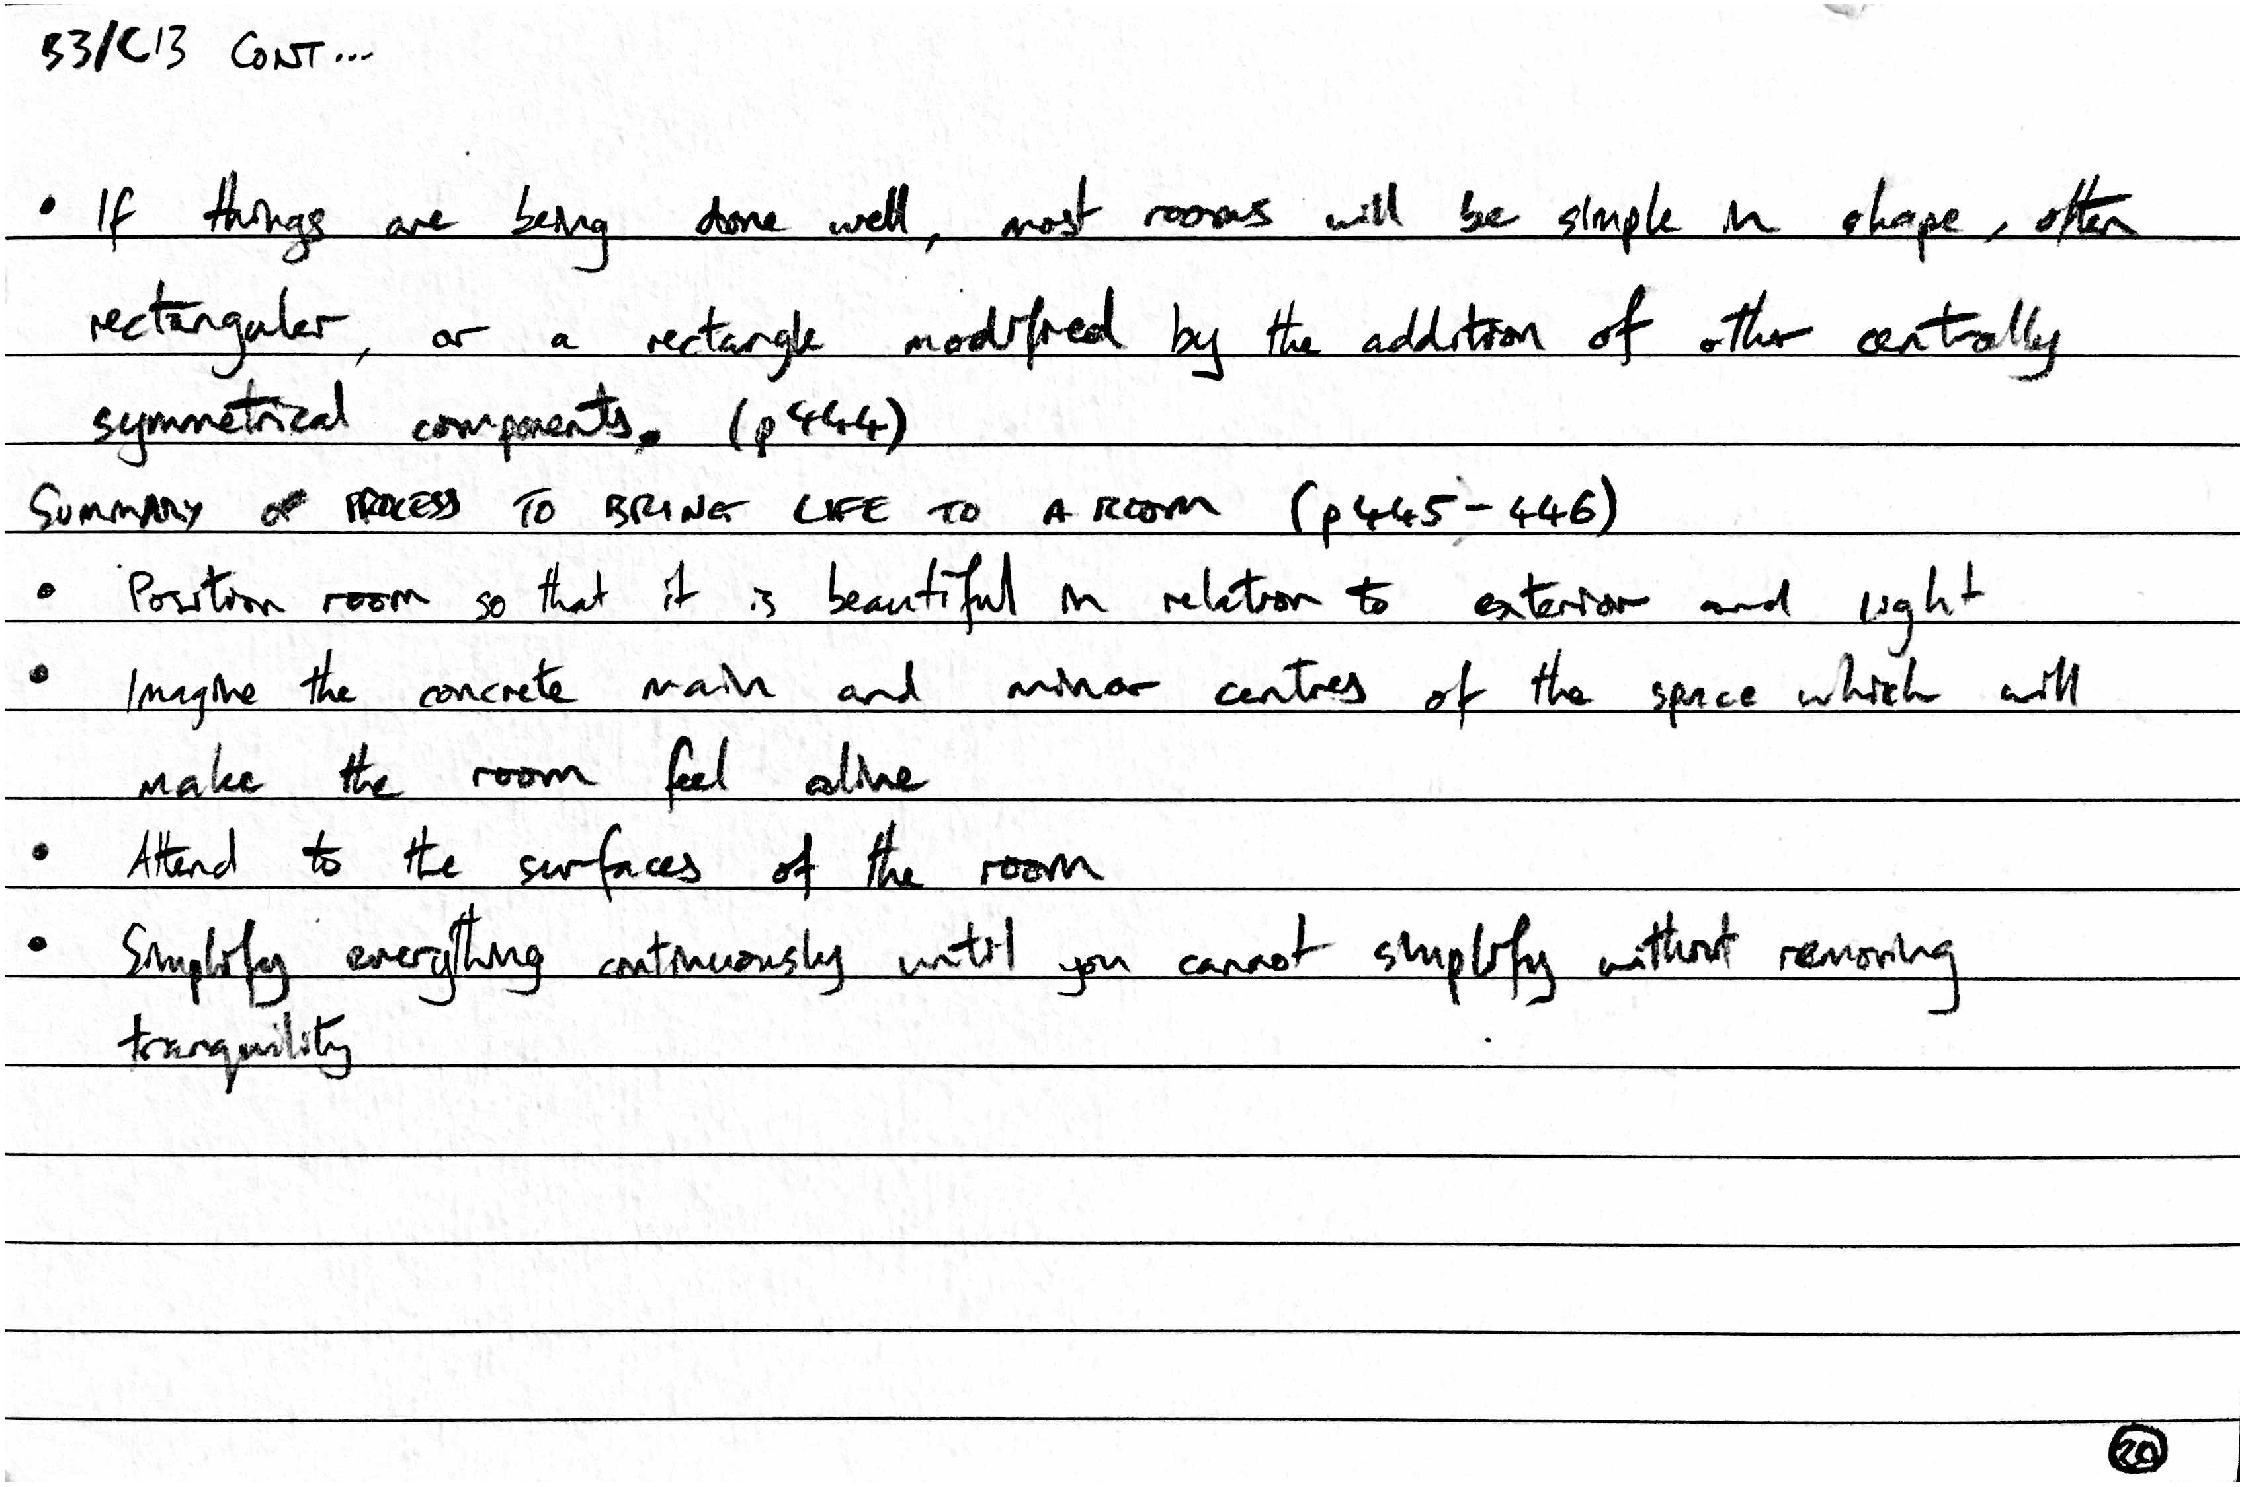 B3/C13 CONT...
• If things are being done well, most rooms will be simple in shape, often
rectangular, or a rectangle modified by the addition of other centrally
symmetrical components. (p444)
SUMMARY OF PROCESS TO BRING LIFE TO A ROOM (p445-446)
• Position room so that it is beautiful in relation to exterior and light
• Imagine the concrete main and minor centres of the space which will
make the room feel alive
• Attend to the surfaces of the room
• Simplify everything continuously until you cannot simplify without removing
tranquility
20